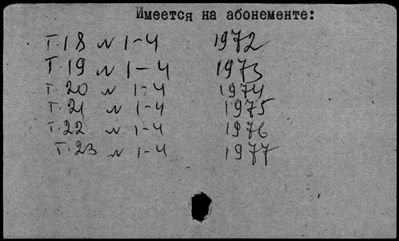 Имеется на абонементе:
Т.18 № 1-4 1972
Т.19 № 1-4 1973
Т.20 № 1-4 1974
Т.21 № 1-4 1975
Т.22 № 1-4 1976
Т.23 № 1-4 1977